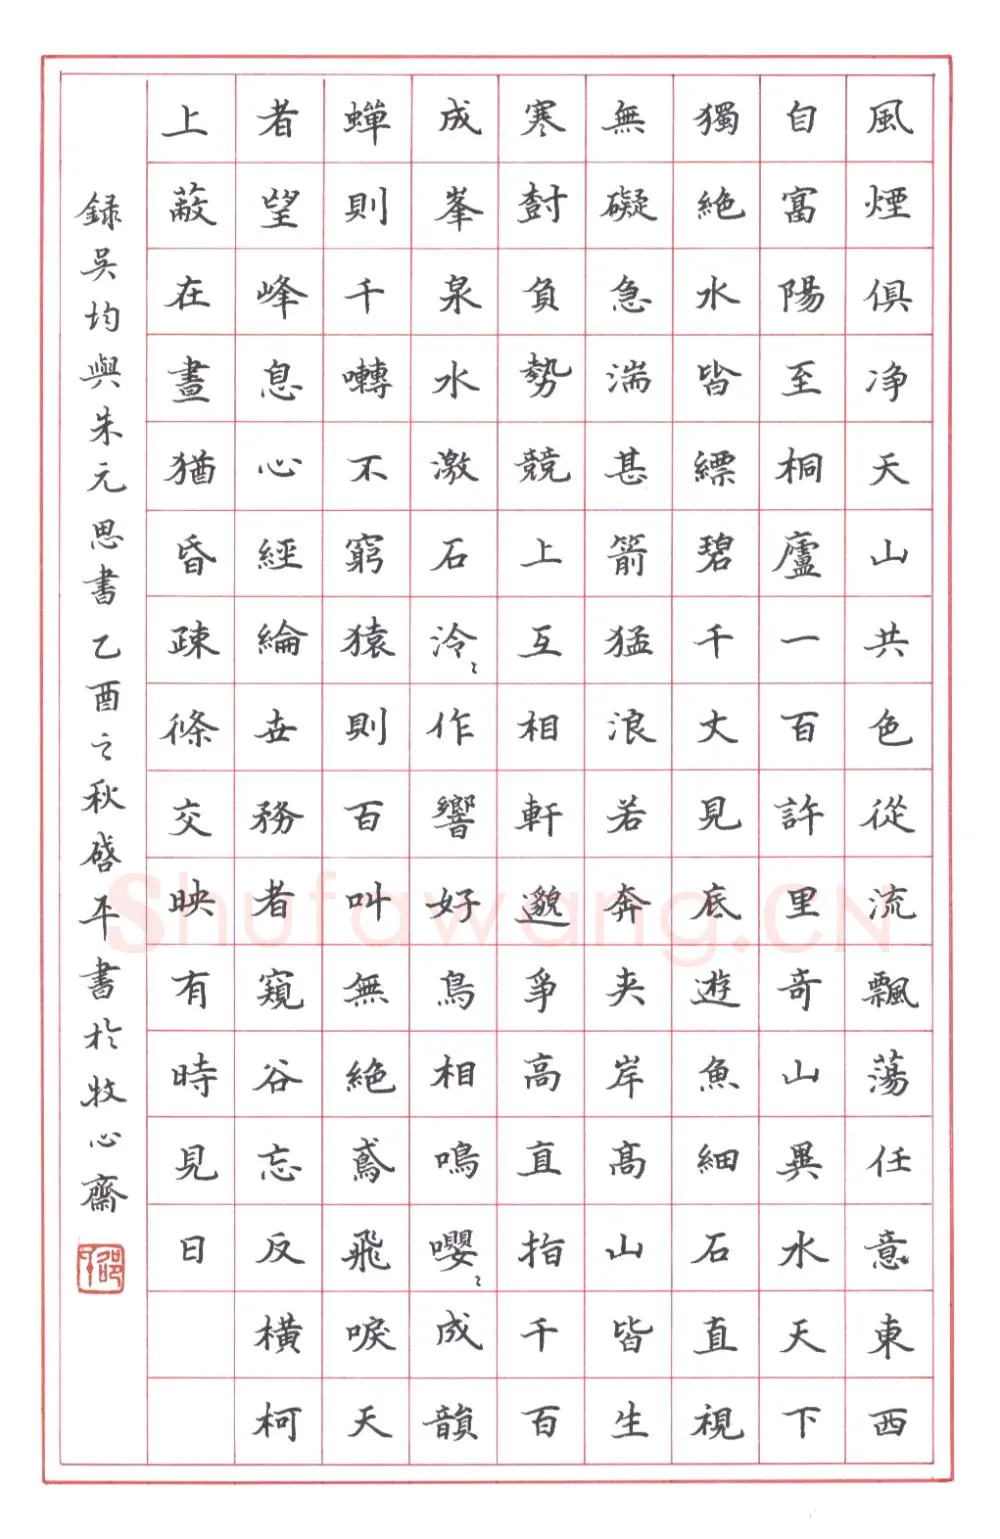 風煙俱净天山共色從流飄蕩任意東西
自富陽至桐廬一百許里奇山異水天下
獨絶水皆縹碧千丈見底遊魚細石直視
無礙急湍甚箭猛浪若奔夹岸高山皆生
寒樹負勢競上互相軒邈爭高直指千百
成峯泉水激石泠〻作響好鳥相鳴嚶〻成韻
蟬則千囀不窮猿則百叫無絶鳶飛唳天
者望峰息心經綸世務者窺谷忘反横柯
上蔽在晝猶昏疎條交映有時見日
録吴均與朱元思書乙酉之秋啓平書於牧心齋
Shufawang.CN